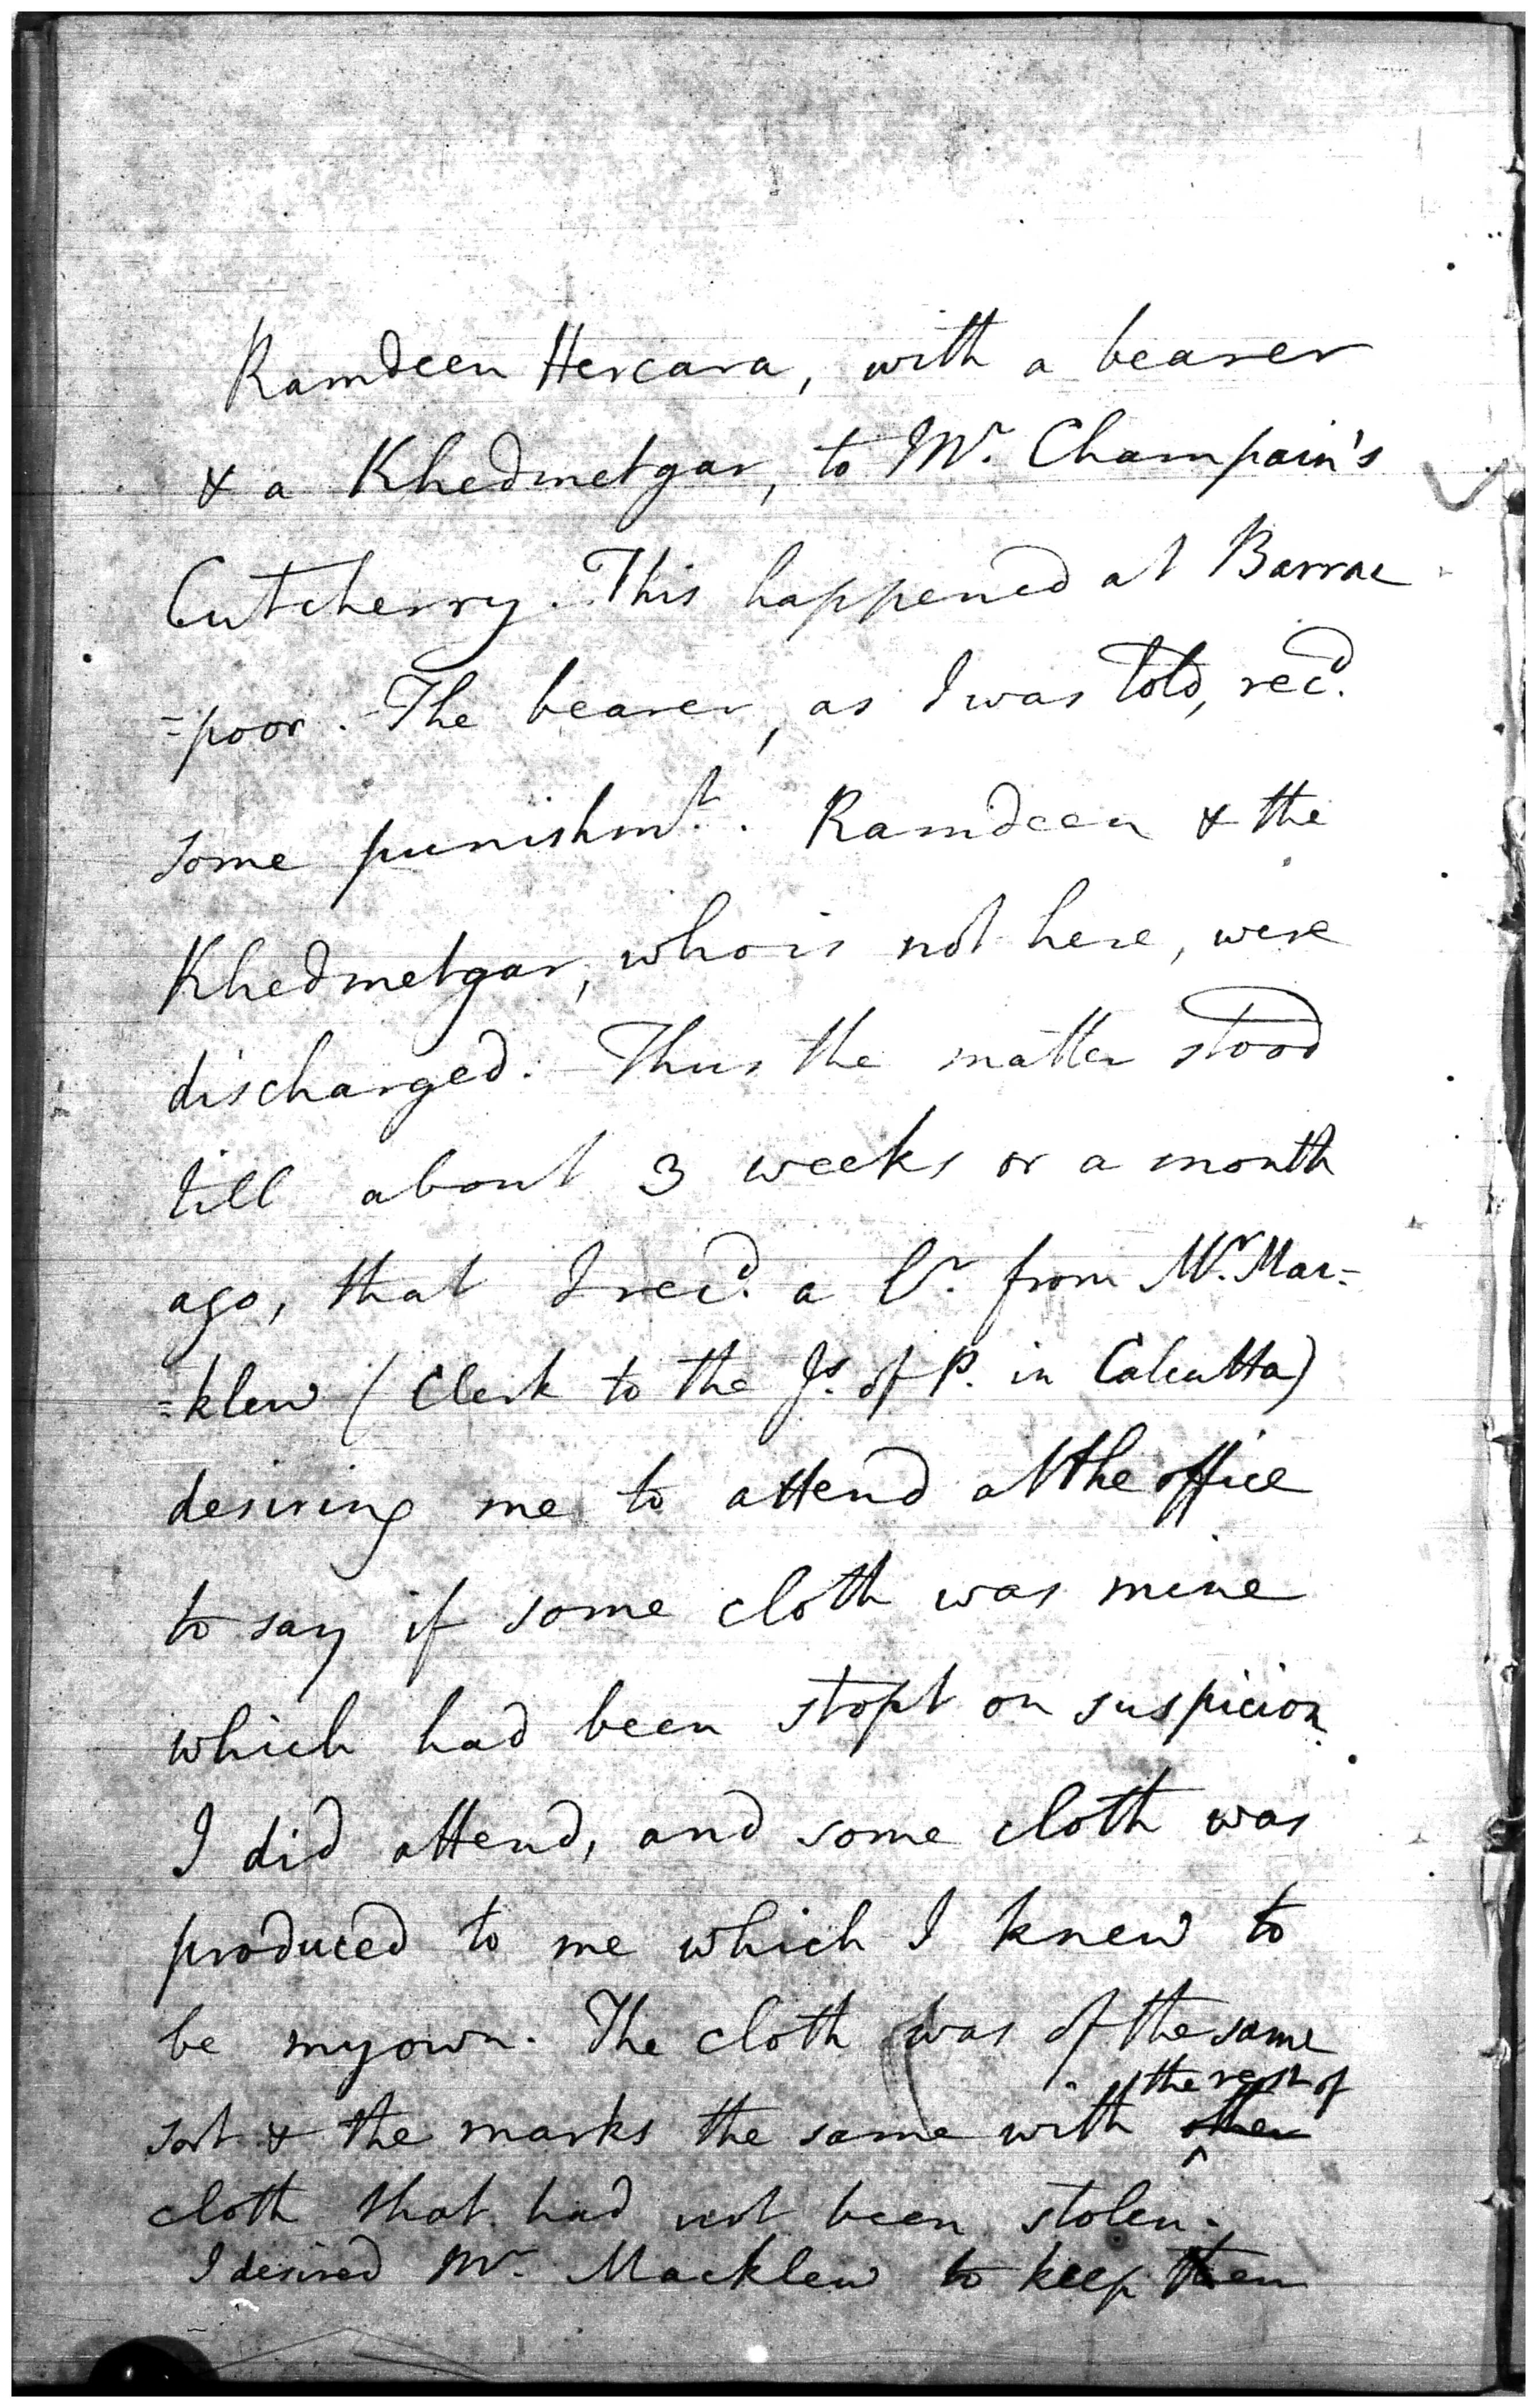 Ramdeen Hercara, with a bearer
& a Khedmetgar, to Mr. Champain's
Cutcherry. This happened at Barrac
=poor. The bearer, as I was told, recd.
some punishmt. Ramdeen & the
Khedmetgar, who is not here, were
discharged. Thus the matter stood
till about 3 weeks or a month
ago, that I recd. a lr. from Mr. Mac=
=klew (Clerk to the Js. of P. in Calcutta)
desiring me to attend at the office
to say if some cloth was mine
which had been stopt on suspicion.
I did attend, and some cloth was
produced to me which I knew to
be my own. The cloth was of the same
the rest of
sort & the marks the same with other
cloth that had not been stolen.
I desired Mr. Macklew to keep them